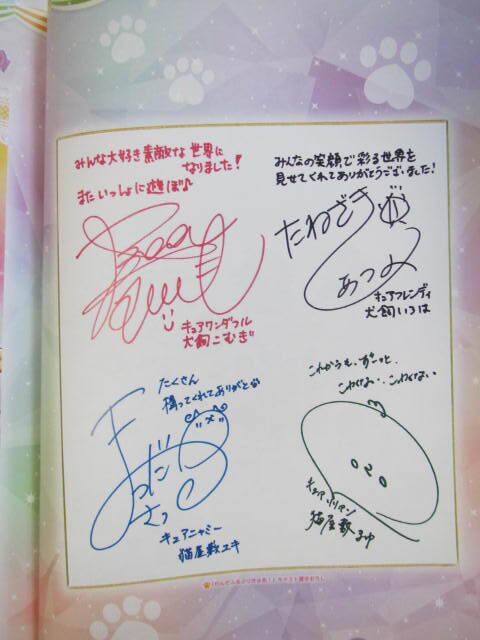 みんな大好き素敵な世界に
なりました!
またいっしょに遊ぼ♪
キュアワンダフル
犬飼こむぎ
みんなの笑顔で彩る世界を
見せてくれてありがとうございました!
たねざき
あつみ
キュアフレンディ
犬飼いろは
たくさん
持ってくれてありがとう
まつだ
さつ
キュアニャミー
猫屋敷ユキ
これからも、ずーっと、
こわくない、こわくない
キュアリリアン
猫屋敷まゆ